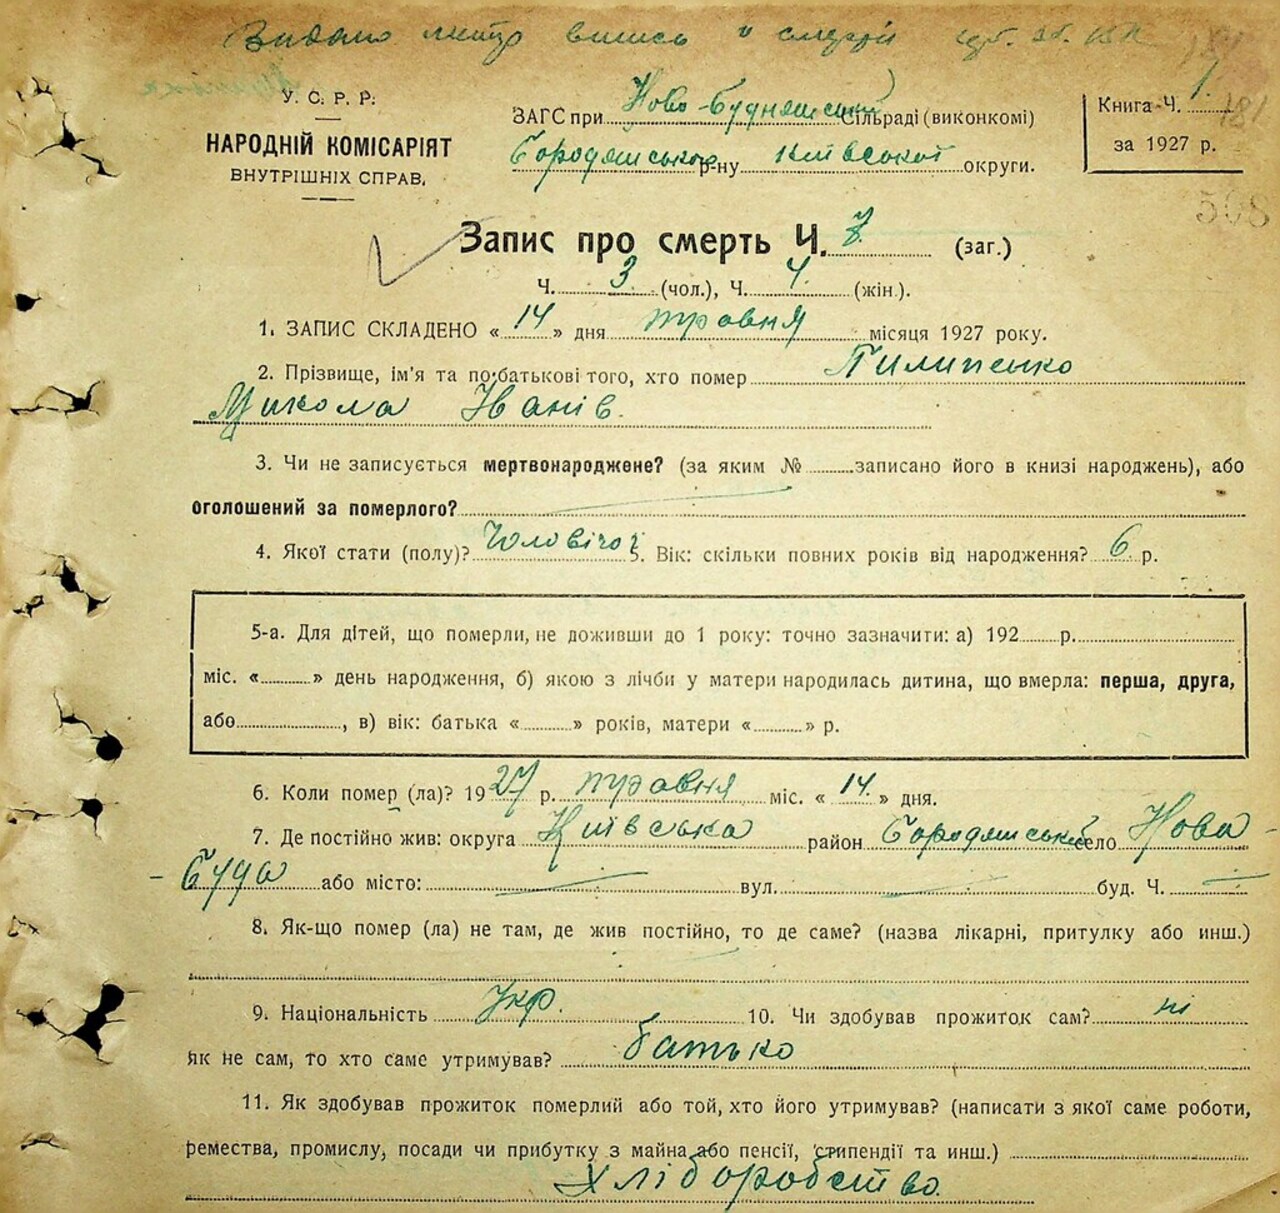 Видано витяг і смерті
У. С. Р. Р.
НАРОДНІЙ КОМІСАРІЯТ
ВНУТРІШНІХ СПРАВ.
ЗАГС при Ново-Буднянській Сільраді (виконкомі)
Бородянського р-ну Київської округи.
Книга Ч. 1
за 1927 р.
181
508
Запис про смерть Ч. 7 (заг.)
Ч. 3 (чол.), Ч. 4 (жін.).
1. ЗАПИС СКЛАДЕНО « 14 » дня травня місяця 1927 року.
2. Прізвище, ім'я та по батькові того, хто помер Пилипенко
Микола Іванів.
3. Чи не записується мертвонароджене? (за яким № записано його в книзі народжень), або
оголошений за померлого?
4. Якої стати (полу)? Чоловічої 5. Вік: скільки повних років від народження? 6 р.
5-а. Для дітей, що померли, не доживши до 1 року: точно зазначити: а) 192 р.
міс. « » день народження, б) якою з лічби у матери народилась дитина, що вмерла: перша, друга,
або , в) вік: батька « » років, матери « » р.
6. Коли помер (ла)? 1927 р. травня міс. « 14. » дня.
7. Де постійно жив: округа Київська район Бородянський село Нова-
-Буда або місто: вул. буд. Ч.
8. Як-що помер (ла) не там, де жив постійно, то де саме? (назва лікарні, притулку або инш.)
9. Національність Укр. 10. Чи здобував прожиток сам? ні
Як не сам, то хто саме утримував? батько
11. Як здобував прожиток померлий або той, хто його утримував? (написати з якої саме роботи,
ремества, промислу, посади чи прибутку з майна або пенсії, стипендії та инш.)
Хліборобство.